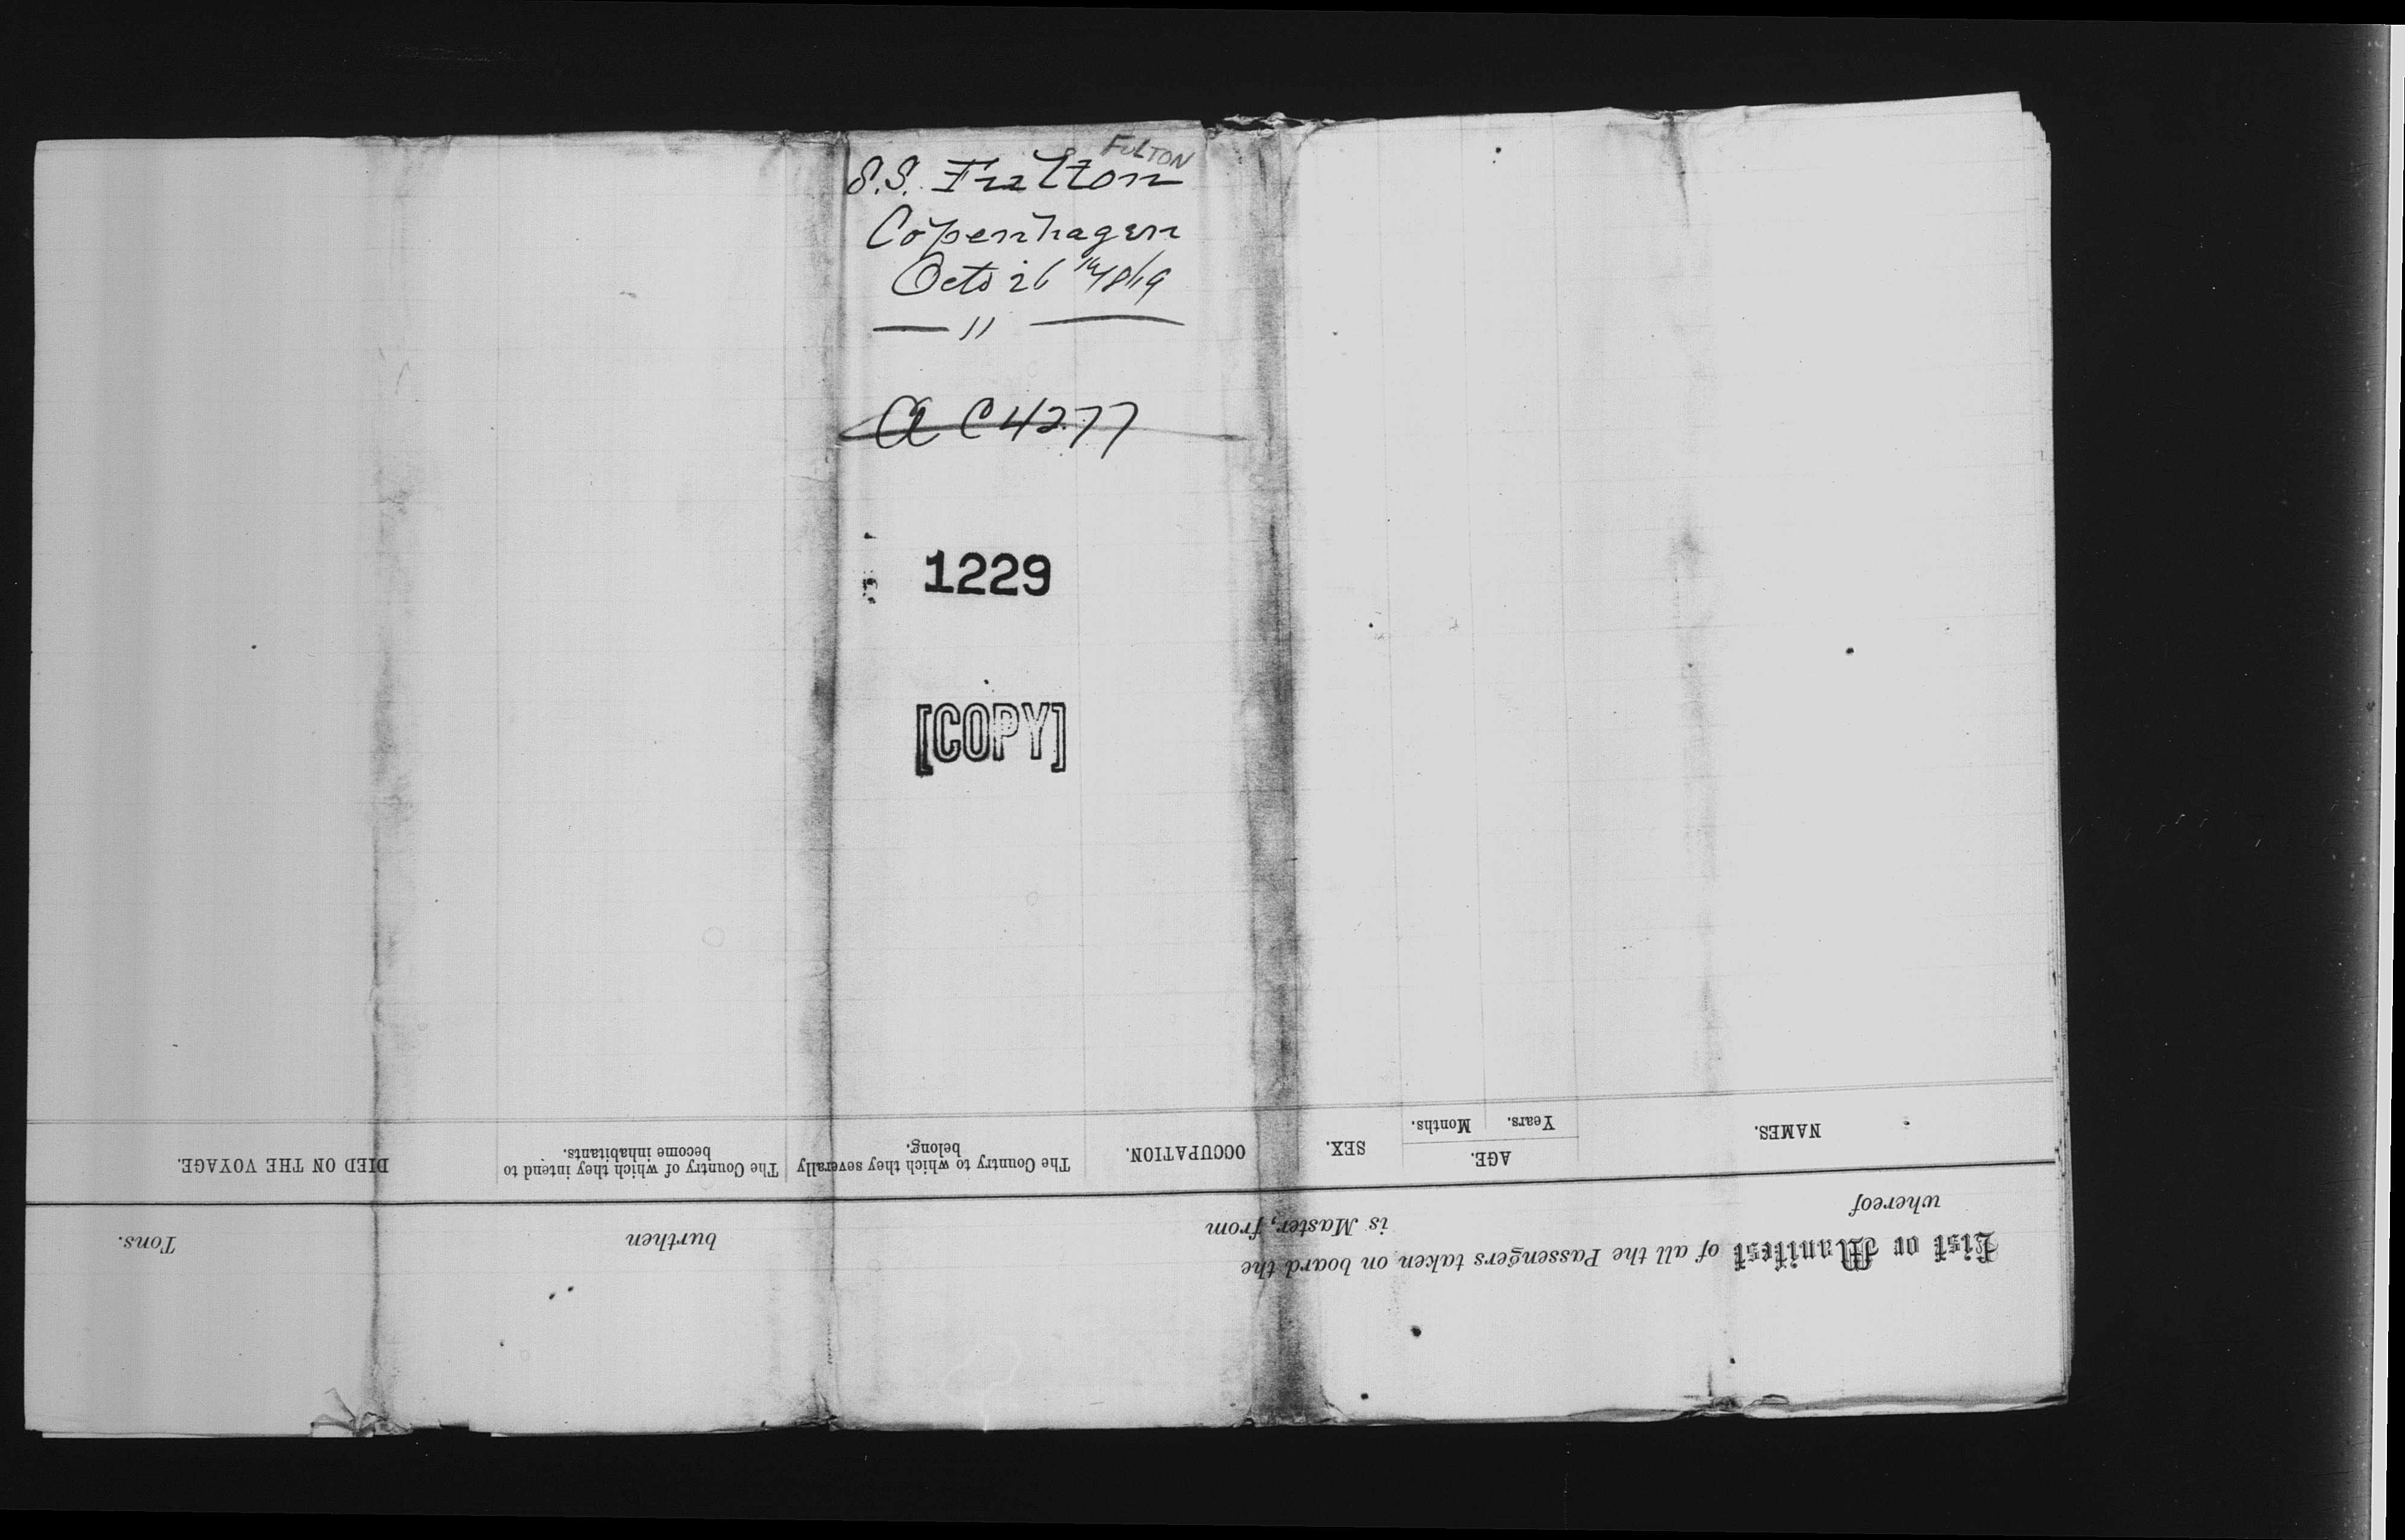 FULTON
S.S. Fulton
Copenhagen
Octo 26th 1869
— " —
A C 4277
1229
[COPY]
List or Manifest of all the Passengers taken on board the
whereof is Master, from burthen Tons.
NAMES. AGE. Years. Months. SEX. OCCUPATION. The Country to which they severally belong. The Country of which they intend to become inhabitants. DIED ON THE VOYAGE.